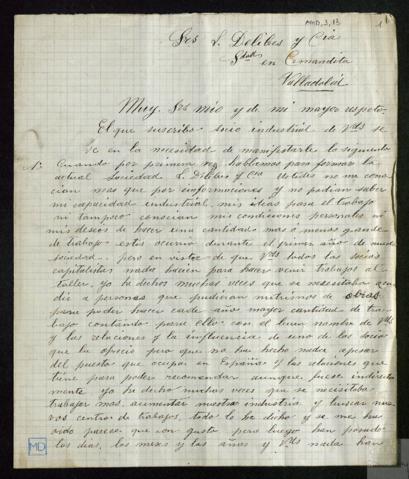 MMD, 3, 13
1
Sres S. Delibes y Cía
Sdad en Comandita
Valladolid
Muy Sres mio y de mi mayor respeto
El que suscribe socio industrial de Vds se
ve en la necesidad de manifestarle lo siguiente
1º Cuando por primera vez hablamos para formar la
actual Sociedad S. Delibes y Cía Ustedes no me cono
cian mas que por informaciones y no podian saber
mi capacidad industrial, mis ideas para el trabajo
ni tampoco conocian mis condiciones personales ni
mis deseos de hacer una cantidad mas o menos grande
de trabajo esto ocurrio durante el primer año de nuestra
sociedad. pero en vistas de que Vds todos los socios
capitalistas nada hacian para hacer venir trabajos al
taller, yo he dicho muchas veces que se necesitaba acu
dir a personas que pudieran nutrirnos de obras
para poder hacer cada año mayor cantidad de tra
bajo contando para ello con el buen nombre de Vds
y las relaciones y la influencia de uno de los socios
que la ofrecio pero que no ha hecho nada apesar
del puesto que ocupa en España y las relaciones que
tiene para poder recomendar aunque fuese indirecta
mente yo he dicho muchas veces que se necesitaba
trabajar mas, aumentar nuestra industria y buscar nue
vos centros de trabajos, todo lo he dicho y se me ha
oido parece que con gusto pero luego han pasado
los dias, los meses y los años y Vds nada han
MD